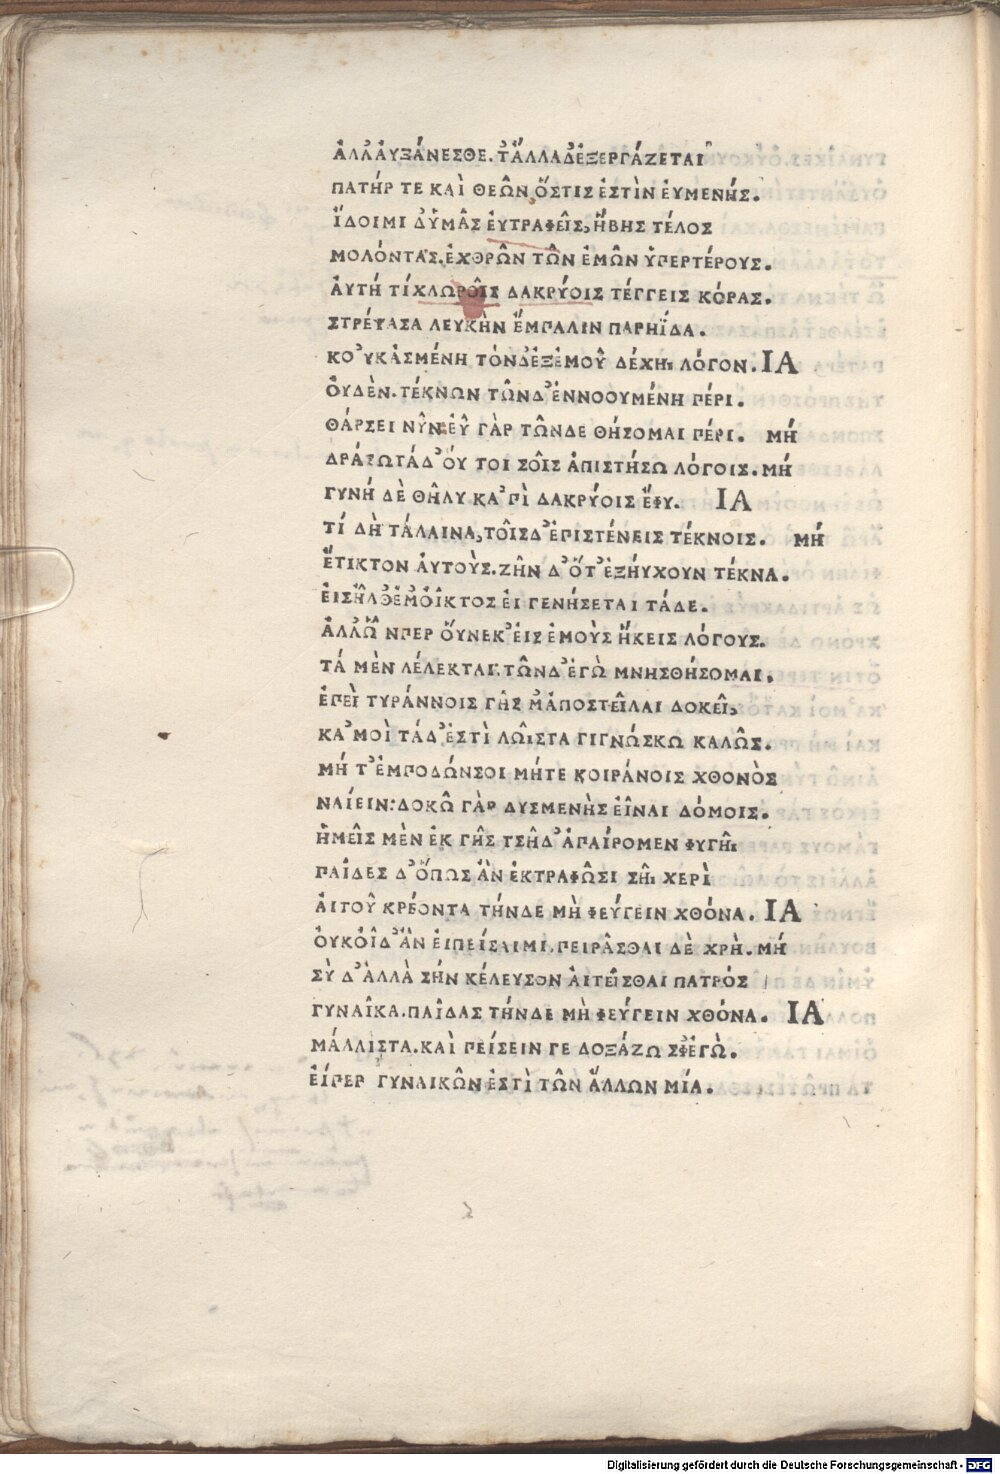 ἈΛΛ' ἈΥΞΆΝΕΣΘΕ. ΤἌΛΛΑ Δ' ἘΞΕΡΓΆΖΕΤΑΙ
ΠΑΤΉΡ ΤΕ ΚΑῚ ΘΕΩ͂Ν, ὍΣΤΙΣ ἘΣΤῚΝ ἘΥΜΕΝΉΣ.
ἼΔΟΙΜΙ Δ' ὙΜΑ͂Σ ἘΥΤΡΑΦΕΙ͂Σ, ἭΒΗΣ ΤΈΛΟΣ
ΜΟΛΌΝΤΑΣ. ἘΧΘΡΩ͂Ν ΤΩ͂Ν ἘΜΩ͂Ν ὙΠΕΡΤΈΡΟΥΣ.
ἈΥΤΉ ΤΊ ΧΛΩΡΟΙ͂Σ ΔΑΚΡΎΟΙΣ ΤΈΓΓΕΙΣ ΚΌΡΑΣ.
ΣΤΡΈΨΑΣΑ ΛΕΥΚῊΝ ἜΜΠΑΛΙΝ ΠΑΡΗΪ́ΔΑ.
ΚΟ'ΥΚ ἈΣΜΈΝΗ ΤΌΝΔ' ἘΞ ἘΜΟΥ͂ ΔΈΧΗΙ ΛΌΓΟΝ. ΙΑ
ὈΥΔῈΝ. ΤΈΚΝΩΝ ΤΩ͂ΝΔ' ἘΝΝΟΟΥΜΈΝΗ ΠΈΡΙ.
ΘΆΡΣΕΙ ΝΥ͂Ν. ἘΥ͂ ΓᾺΡ ΤΩ͂ΝΔΕ ΘΉΣΟΜΑΙ ΠΈΡΙ. ΜΉ
ΔΡΆΣΩ ΤΆΔ' ὌΥ ΤΟΙ ΣΟΙ͂Σ ἈΠΙΣΤΉΣΩ ΛΌΓΟΙΣ. ΜΉ
ΓΥΝΉ ΔῈ ΘΗ͂ΛΥ ΚΑ'ΠῚ ΔΑΚΡΎΟΙΣ ἜΦΥ. ΙΑ
ΤΊ ΔῊ ΤΆΛΑΙΝΑ, ΤΟΙ͂ΣΔ' ἘΠΙΣΤΈΝΕΙΣ ΤΈΚΝΟΙΣ. ΜΉ
ἜΤΙΚΤΟΝ ἈΥΤΟῪΣ. ΖΗ͂Ν Δ' ὍΤ' ἘΞΗΎΧΟΥΝ ΤΈΚΝΑ.
ἘΙΣΗ͂ΛΘΈ Μ' ὌΙΚΤΟΣ ἘΙ ΓΕΝΉΣΕΤΑΙ ΤΆΔΕ.
ἈΛΛ' Ὧ͂ΝΠΕΡ ὍΥΝΕΚ' ἘΙΣ ἘΜΟῪΣ ἭΚΕΙΣ ΛΌΓΟΥΣ.
ΤᾺ ΜῈΝ ΛΈΛΕΚΤΑΙ. ΤΩ͂ΝΔ' ἘΓῺ ΜΝΗΣΘΉΣΟΜΑΙ.
ἘΠΕῚ ΤΥΡΆΝΝΟΙΣ ΓΗ͂Σ Μ' ἈΠΟΣΤΕΙ͂ΛΑΙ ΔΟΚΕΙ͂,
ΚΑ'ΜΟῚ ΤΆΔ' ἘΣΤῚ ΛΩ͂ΙΣΤΑ ΓΙΓΝΏΣΚΩ ΚΑΛΩ͂Σ.
ΜΉ Τ' ἘΜΠΟΔΏΝ ΣΟΙ ΜΉΤΕ ΚΟΙΡΆΝΟΙΣ ΧΘΟΝῸΣ
ΝΑΊΕΙΝ: ΔΟΚΩ͂ ΓᾺΡ ΔΥΣΜΕΝῊΣ ἘΙ͂ΝΑΙ ΔΌΜΟΙΣ.
ἩΜΕΙ͂Σ ΜῈΝ ἘΚ ΓΗ͂Σ ΤΣΗ͂Δ' ἈΠΑΊΡΟΜΕΝ ΦΥΓΗ͂Ι
ΠΑΙ͂ΔΕΣ Δ' ὍΠΩΣ ἊΝ ἘΚΤΡΑΦΩ͂ΣΙ ΣΗ͂Ι ΧΕΡῚ
ἈΙΤΟΥ͂ ΚΡΈΟΝΤΑ ΤΉΝΔΕ ΜῊ ΦΕΎΓΕΙΝ ΧΘΌΝΑ. ΙΑ
ὈΥΚ ὈΙ͂Δ' ἊΝ ἘΙ ΠΕΊΣΑΙΜΙ. ΠΕΙΡΑ͂ΣΘΑΙ ΔῈ ΧΡῊ. ΜΉ
ΣῪ Δ' ἈΛΛᾺ ΣΉΝ ΚΈΛΕΥΣΟΝ ἈΙΤΕΙ͂ΣΘΑΙ ΠΑΤΡΌΣ
ΓΥΝΑΙ͂ΚΑ. ΠΑΙ͂ΔΑΣ ΤΉΝΔΕ ΜῊ ΦΕΎΓΕΙΝ ΧΘΌΝΑ. ΙΑ
ΜΆΛΛΙΣΤΑ. ΚΑῚ ΠΕΊΣΕΙΝ ΓΕ ΔΟΞΆΖΩ ΣΦ' ἘΓῺ.
ἘΊΠΕΡ ΓΥΝΑΙΚΩ͂Ν ἘΣΤῚ ΤΩ͂Ν ἌΛΛΩΝ ΜΊΑ.
Digitalisierung gefördert durch die Deutsche Forschungsgemeinschaft - DFG